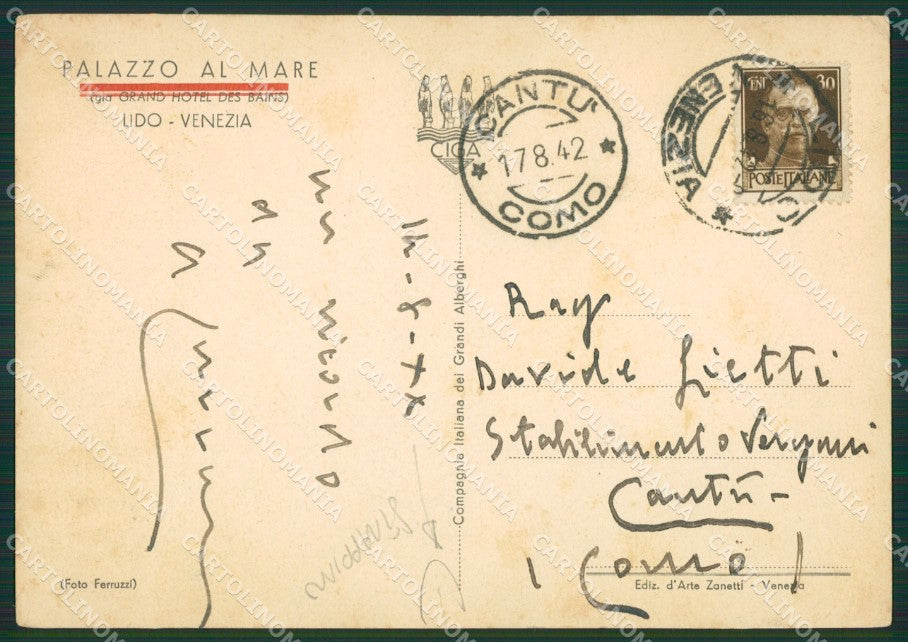 PALAZZO AL MARE
(già GRAND HOTEL DES BAINS)
LIDO - VENEZIA
CIGA
CANTU'
17 8. 42
COMO
VENEZIA
30
POSTE ITALIANE
14-8-XX
un ricordo
Compagnia Italiana dei Grandi Alberghi
Rag
Davide Lietti
Stabilimento Vergani
Cantù -
(Como)
(Foto Ferruzzi)
Ediz. d'Arte Zanetti - Venezia
CARTOLINOMANIA